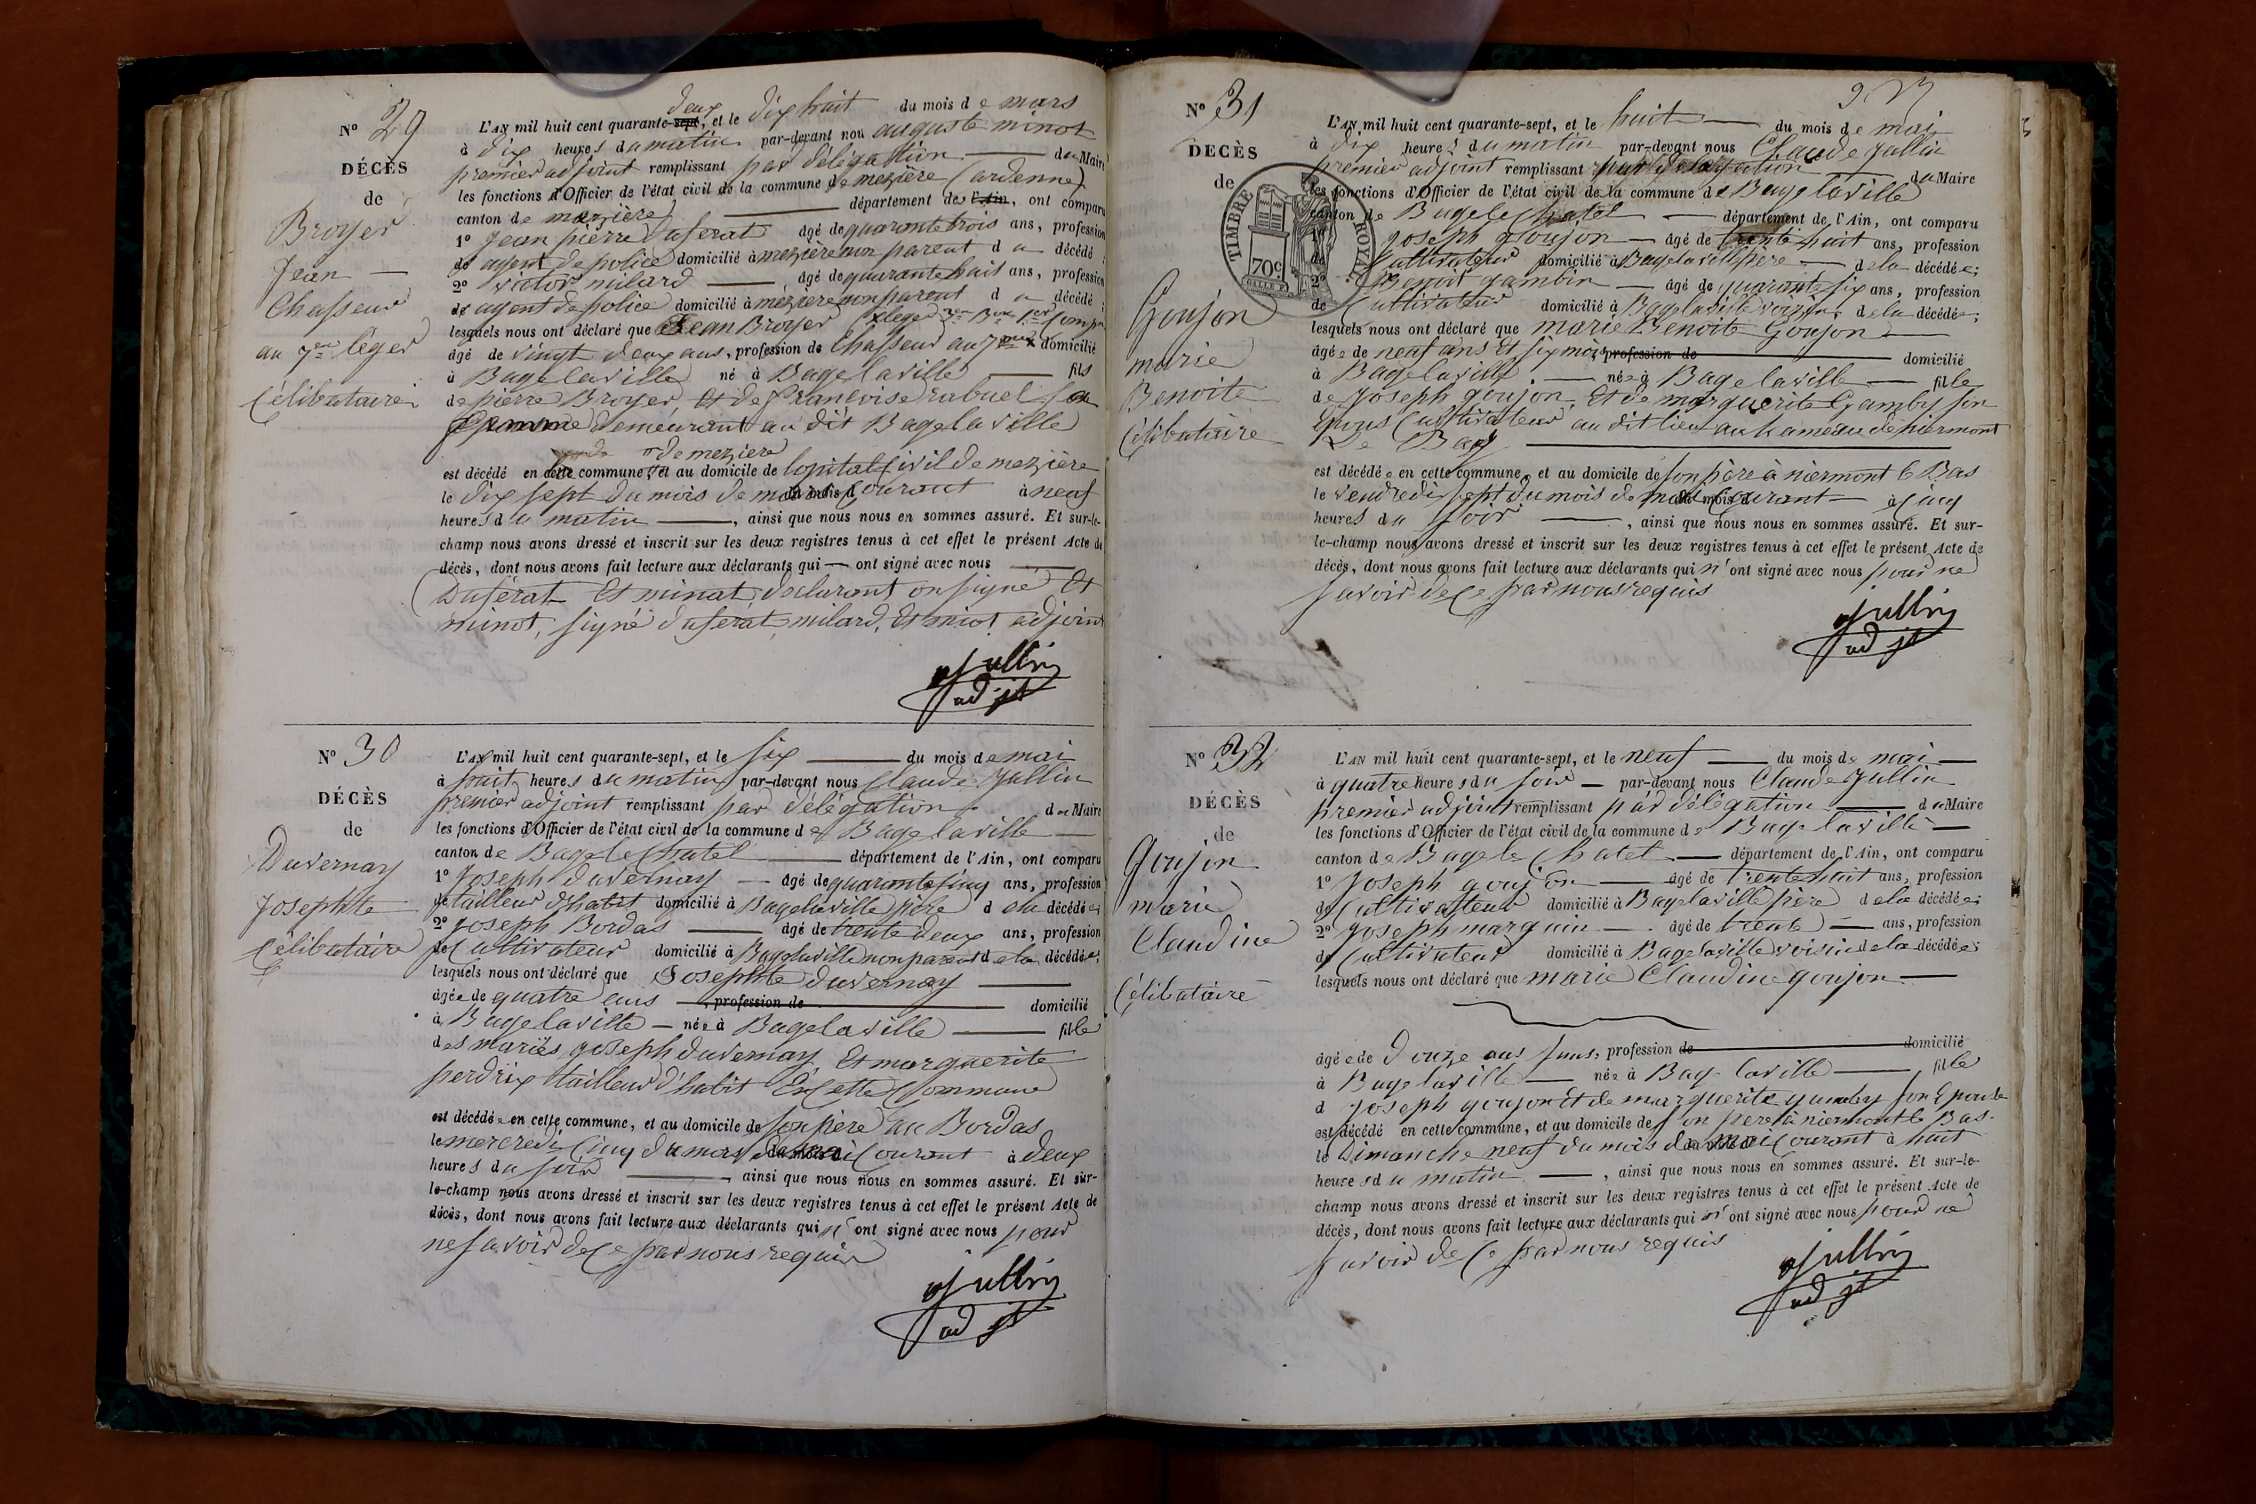 N° 29
DÉCÈS
de
Broyer
Jean —
Chasseur
au 7me léger
Célibataire
deux
L'AN mil huit cent quarante-sept, et le dix huit du mois de mars
à dix heures du matin par-devant nou auguste minot
premier adjoint remplissant par délégation — du Maire
les fonctions d'Officier de l'état civil de la commune de mezière (ardenne)
canton de mezière — département de l'Ain, ont comparu
1° Jean pierre Duferat âgé de quarante trois ans, profession
de agent de police domicilié à mezière non parent du décédé;
2° milard — âgé de quarante huit ans, profession
de agent de police domicilié à mezière non parent du décédé;
lesquels nous ont déclaré que Jean Broyer
âgé de vingt deux ans, profession de Chasseur au 7me domicilié
à Bage laville né à Bage laville — fils
de pierre Broyer, et de francoise rabuel sa
femme demeurant au dit Bage laville
de mezière
est décédé en cette commune, et au domicile de lopital civil de mezière
le dix sept du mois de mars courant à neuf
heures du matin —, ainsi que nous nous en sommes assuré. Et sur-le-
champ nous avons dressé et inscrit sur les deux registres tenus à cet effet le présent Acte de
décès, dont nous avons fait lecture aux déclarants qui — ont signé avec nous —
Duferat Et minat declarant on signé Et
minot, signé duferat, milard, Et minot adjoint
Jullin
adjt
N° 30
DÉCÈS
de
Duvernay
Josephte
Célibataire
L'AN mil huit cent quarante-sept, et le six — du mois de mai
à huit heures du matin par-devant nous Claude Jullin
premier adjoint remplissant par délégation du Maire
les fonctions d'Officier de l'état civil de la commune de Bage laville —
canton de Bage le Chatel — département de l'Ain, ont comparu
1° Joseph duvernay — âgé de quarante cinq ans, profession
de tailleur d'habit domicilié à Bage laville père de la décédée;
2° Joseph Bordas — âgé de trente deux ans, profession
de Cultivateur domicilié à Bage laville non parent de la décédée;
lesquels nous ont déclaré que Josephte duvernay —
âgée de quatre ans —, profession de — domicilié
à Bage laville — née à Bage laville — fille
des mariés joseph duvernay, Et marguerite
perdrix tailleur d'habit En Cette Commune
est décédée en cette commune, et au domicile de son père au Bordas
le mercredi Cinq du mois de mai Courant à deux
heures du soir —, ainsi que nous nous en sommes assuré. Et sur-
le-champ nous avons dressé et inscrit sur les deux registres tenus à cet effet le présent Acte de
décès, dont nous avons fait lecture aux déclarants qui n'ont signé avec nous pour
ne savoir de Ce par nous requis
Jullin
adjt
N° 31
DÉCÈS
de
Goujon
marie
Benoite
Célibataire
TIMBRE ROYAL
70c
L'AN mil huit cent quarante-sept, et le huit — du mois de mai
à dix heures du matin par-devant nous Claude Jullin
premier adjoint remplissant par délégation du Maire
les fonctions d'Officier de l'état civil de la commune de Bage laville
canton de Bage le Chatel — département de l'Ain, ont comparu
joseph goujon — âgé de trente huit ans, profession
de Cultivateur domicilié à Bage laville père — de la décédée;
2° Benoit gambin — âgé de quarante six ans, profession
de Cultivateur domicilié à Bage laville voisin de la décédée;
lesquels nous ont déclaré que marie Benoite Goujon —
âgée de neuf ans Et six mois profession de — domicilié
à Bage laville — née à Bage laville — fille
de Joseph goujon, Et de marguerite Gamby son
Epous Cultivateur au dit lieu au hameau de niermont
Le Bas —
est décédée en cette commune, et au domicile de son père à niermont le Bas
le vendredi sept du mois de mai courant — à Cinq
heures du soir —, ainsi que nous nous en sommes assuré. Et sur-
le-champ nous avons dressé et inscrit sur les deux registres tenus à cet effet le présent Acte de
décès, dont nous avons fait lecture aux déclarants qui n'ont signé avec nous pour ne
savoir de Ce par nous requis
Jullin
adjt
N° 32
DÉCÈS
de
Goujon
marie
Claudine
Célibataire
L'AN mil huit cent quarante-sept, et le neuf — du mois de mai —
à quatre heures du soir — par-devant nous Claude Jullin
premier adjoint remplissant par délégation — du Maire
les fonctions d'Officier de l'état civil de la commune de Bage laville —
canton de Bage le Chatel — département de l'Ain, ont comparu
1° Joseph goujon — âgé de trente huit ans, profession
de Cultivateur domicilié à Bage laville père de la décédée;
2° Joseph marguin — âgé de trente — ans, profession
de Cultivateur domicilié à Bage laville voisin de la décédée;
lesquels nous ont déclaré que marie Claudine goujon —
âgée de douze ans sans, profession de — domicilié
à Bage laville — née à Bage laville — fille
d Joseph goujon Et de marguerite gamby son Epouse
est décédé en cette commune, et au domicile de son pere à niermont le Bas
le Dimanche neuf du mois de mai Courant à huit
heures du matin —, ainsi que nous nous en sommes assuré. Et sur-le-
champ nous avons dressé et inscrit sur les deux registres tenus à cet effet le présent Acte de
décès, dont nous avons fait lecture aux déclarants qui n'ont signé avec nous pour ne
savoir de Ce par nous requis
Jullin
adjt